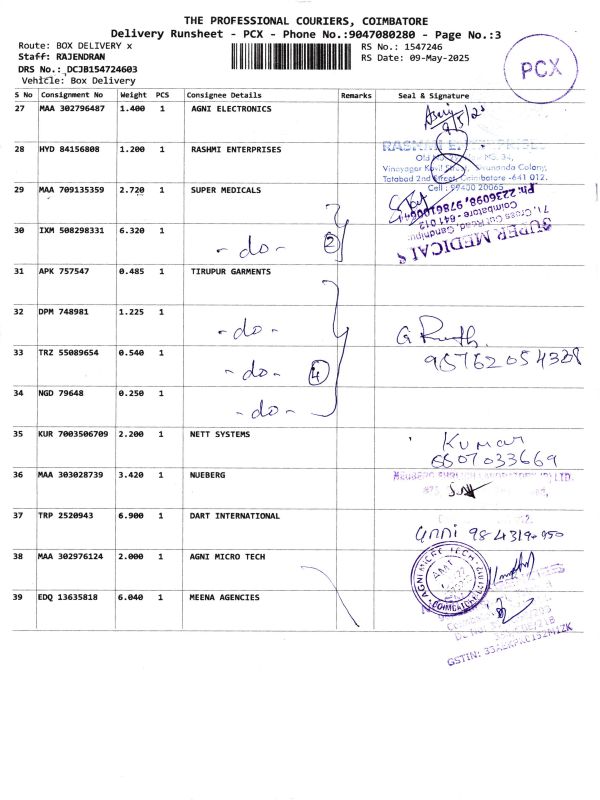 THE PROFESSIONAL COURIERS, COIMBATORE
Delivery Runsheet - PCX - Phone No.:9047080280 - Page No.:3
Route: BOX DELIVERY x
RS No.: 1547246
Staff: RAJENDRAN
RS Date: 09-May-2025
DRS No.: DCJB154724603
Vehicle: Box Delivery
PCX
S No Consignment No Weight PCS Consignee Details Remarks Seal & Signature
27 MAA 302796487 1.400 1 AGNI ELECTRONICS
9/5/25
28 HYD 84156808 1.200 1 RASHMI ENTERPRISES
Tatabad 2nd Street, Coimbatore -641 012.
Cell : 99400 20065
29 MAA 709135359 2.720 1 SUPER MEDICALS
SUPER MEDICALS
71, Cross Cut Road, Gandhipuram
Coimbatore - 641 012
30 IXM 508298331 6.320 1 - do - 2
31 APK 757547 0.485 1 TIRUPUR GARMENTS
32 DPM 748981 1.225 1 - do -
33 TRZ 55089654 0.540 1 - do - 4
34 NGD 79648 0.250 1 - do -
35 KUR 7003506709 2.200 1 NETT SYSTEMS
Kumar
36 MAA 303028739 3.420 1 NUEBERG
37 TRP 2520943 6.900 1 DART INTERNATIONAL
38 MAA 302976124 2.000 1 AGNI MICRO TECH
AGNI MICRO TECH
COIMBATORE
39 EDQ 13635818 6.040 1 MEENA AGENCIES